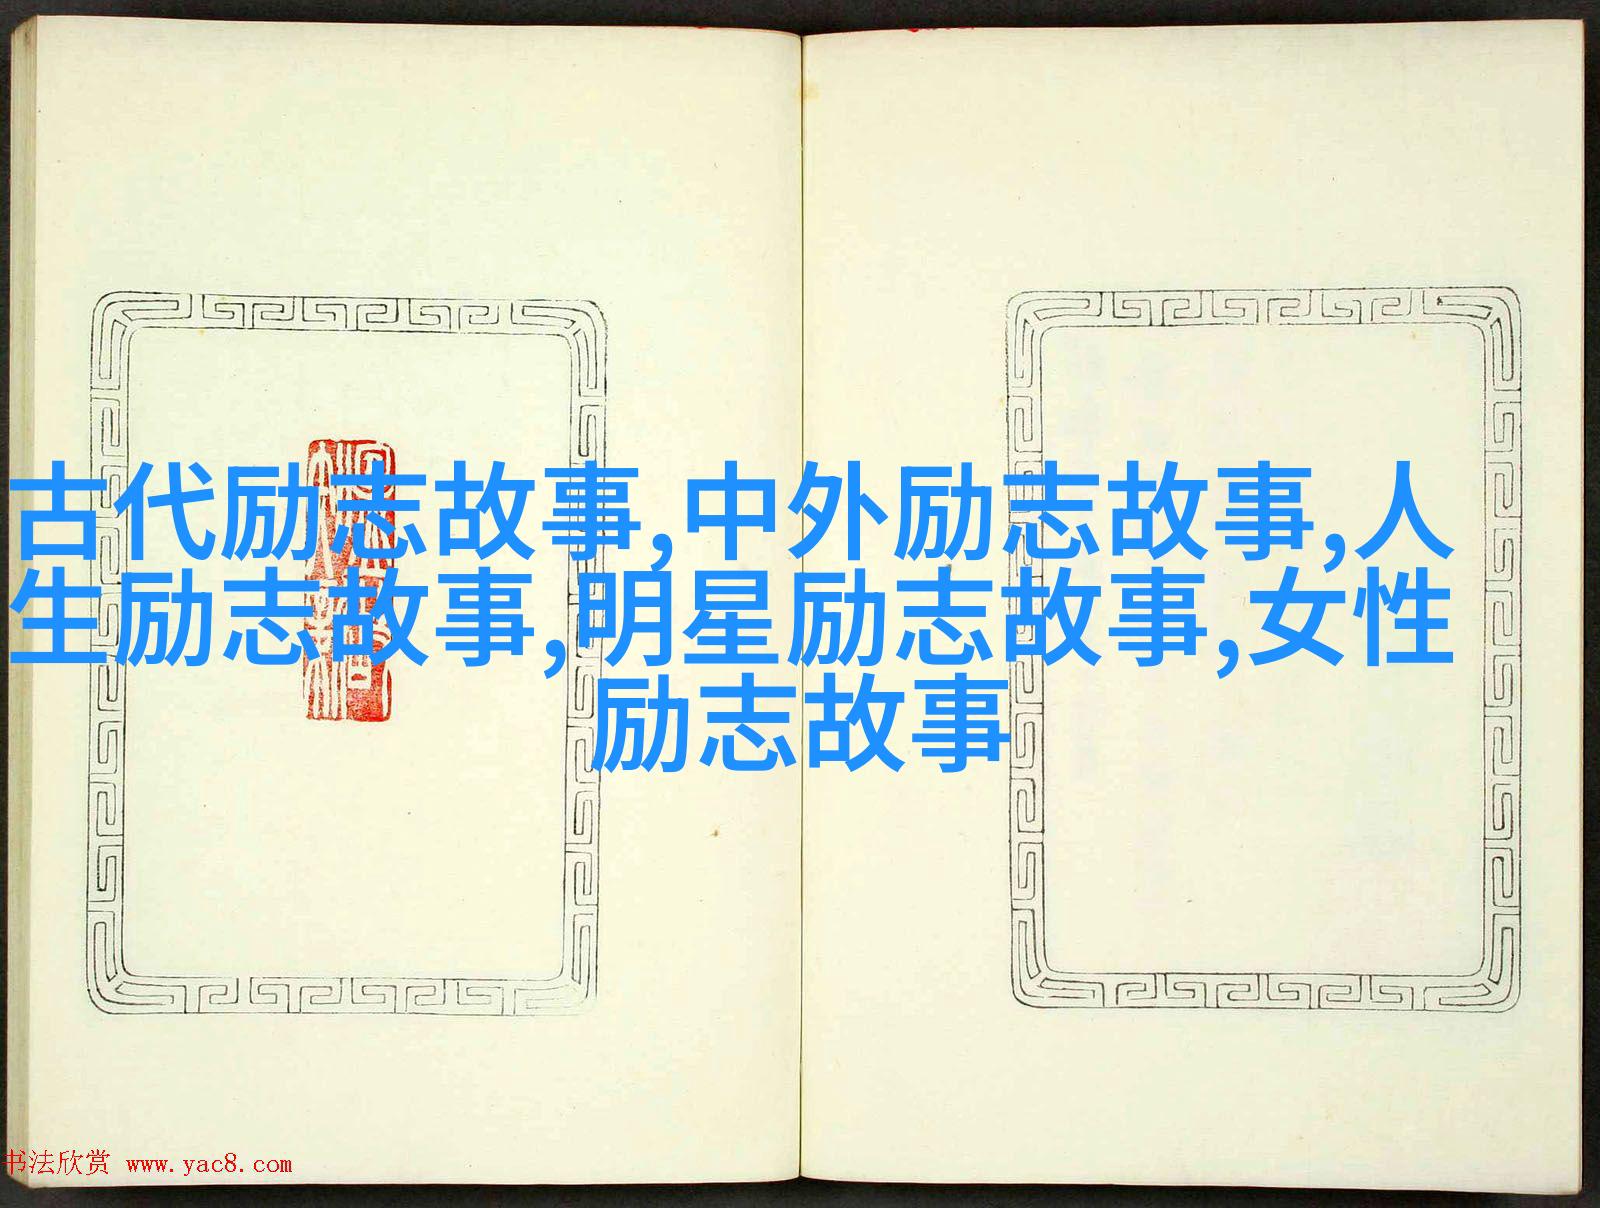 古代励志故事,中外励志故事,人
生励志故事,明星励志故事,女性
励志故事
书法欣赏 www.yac8.com